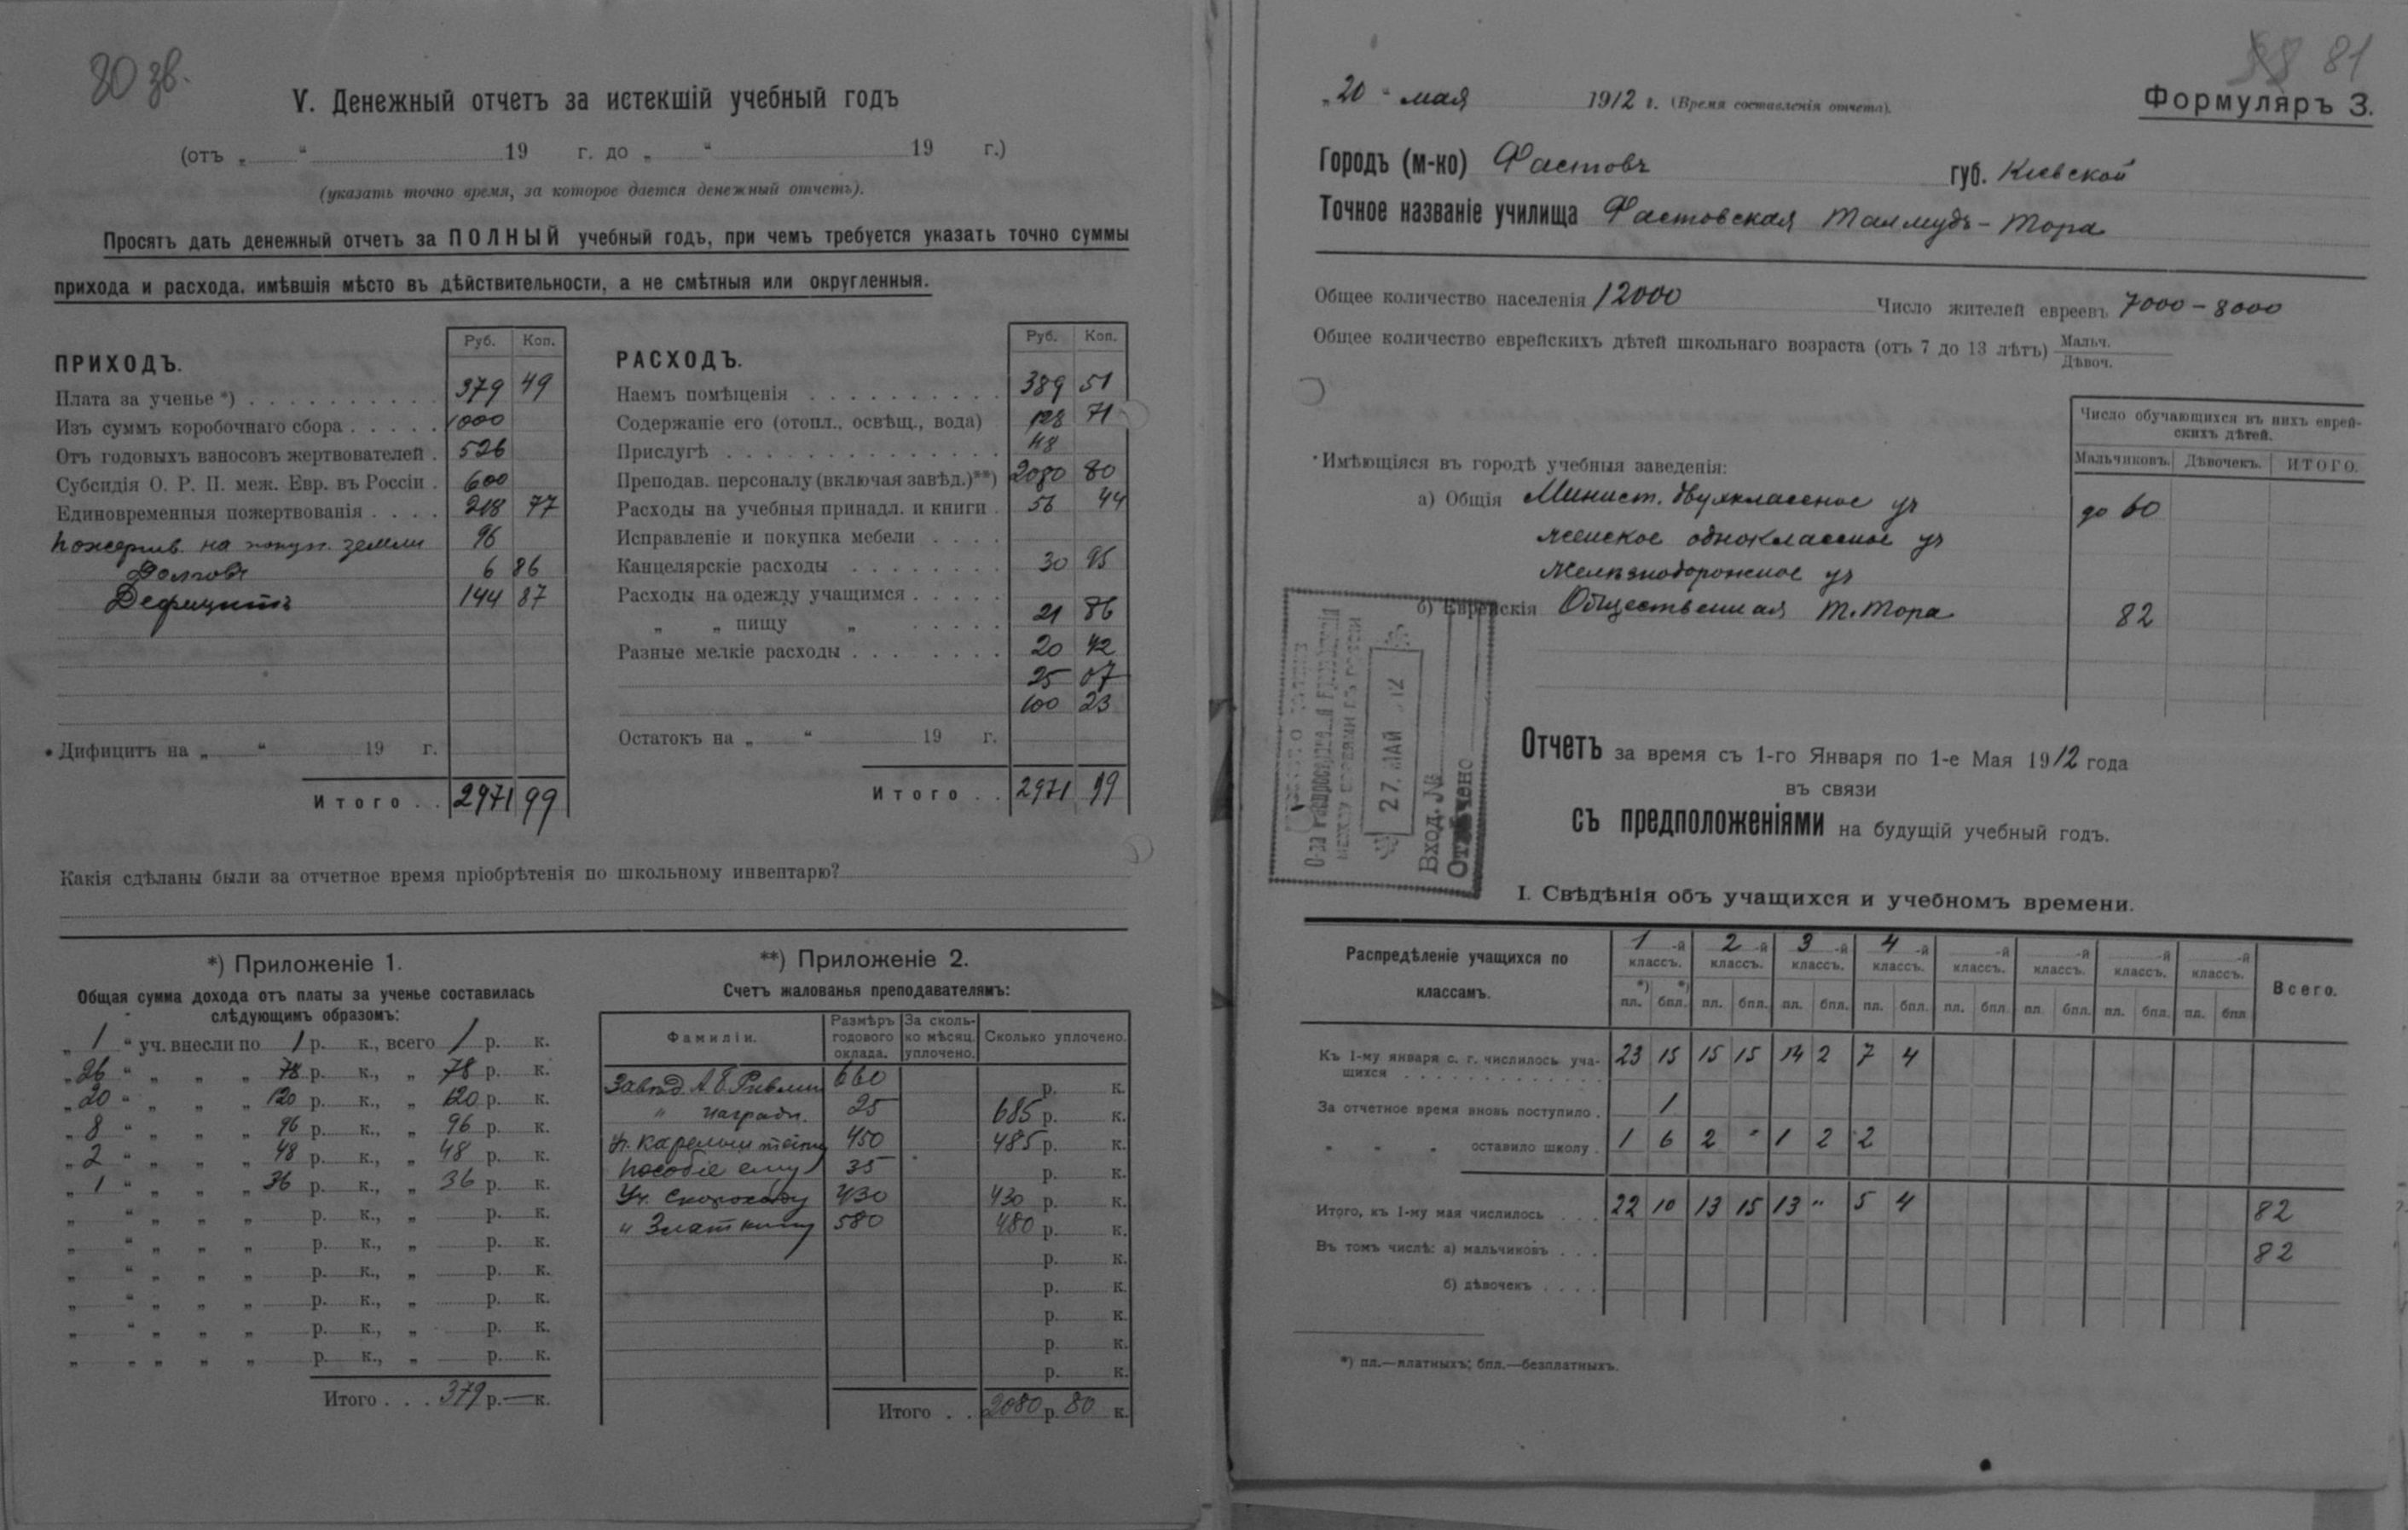 80 зв.
V. Денежный отчетъ за истекшій учебный годъ
(отъ „ “ 19 г. до „ “ 19 г.)
(указать точно время, за которое дается денежный отчетъ).
Просятъ дать денежный отчетъ за ПОЛНЫЙ учебный годъ, при чемъ требуется указать точно суммы
прихода и расхода, имѣвшія мѣсто въ дѣйствительности, а не смѣтныя или округленныя.
ПРИХОДЪ. Руб. Коп.
Плата за ученье *) 379 49
Изъ суммъ коробочнаго сбора 1000
Отъ годовыхъ взносовъ жертвователей 526
Субсидія О. Р. П. меж. Евр. въ Россіи 600
Единовременныя пожертвованія 218 77
Пожертв. на покуп. земли 96
Долговъ 6 86
Дефицитъ 144 87
Дифицитъ на „ “ 19 г.
Итого 2971 99
РАСХОДЪ. Руб. Коп.
Наемъ помѣщенія 389 51
Содержаніе его (отопл., освѣщ., вода) 128 71
Прислугѣ 48
Преподав. персоналу (включая завѣд.)**) 2080 80
Расходы на учебныя принадл. и книги 56 44
Исправленіе и покупка мебели
Канцелярскіе расходы 30 95
Расходы на одежду учащимся
„ „ пищу „ 21 86
Разные мелкіе расходы 20 42
25 07
100 23
Остатокъ на „ “ 19 г.
Итого 2971 99
Какія сдѣланы были за отчетное время пріобрѣтенія по школьному инвентарю?
*) Приложеніе 1.
Общая сумма дохода отъ платы за ученье составилась
слѣдующимъ образомъ:
„ 1 “ уч. внесли по 1 р. к., всего 1 р. к.
„ 26 “ „ „ „ 78 р. к., „ 78 р. к.
„ 20 “ „ „ „ 120 р. к., „ 120 р. к.
„ 8 “ „ „ „ 96 р. к., „ 96 р. к.
„ 2 “ „ „ „ 48 р. к., „ 48 р. к.
„ 1 “ „ „ „ 36 р. к., „ 36 р. к.
„ “ „ „ „ р. к., „ р. к.
„ “ „ „ „ р. к., „ р. к.
„ “ „ „ „ р. к., „ р. к.
„ “ „ „ „ р. к., „ р. к.
„ “ „ „ „ р. к., „ р. к.
„ „ „ „ „ р. к., „ р. к.
Итого . . . 379 р. — к.
**) Приложеніе 2.
Счетъ жалованья преподавателямъ:
Фамиліи. Размѣръ годового оклада. За сколько мѣсяц. уплочено. Сколько уплочено.
Завѣд. А. Б. Ривлин 660 р. к.
„ наградн. 25 685 р. к.
Уч. Карелиштейну 450 485 р. к.
Пособіе ему 35 р. к.
Уч. Скороходу 430 430 р. к.
„ Златкину 580 480 р. к.
р. к.
р. к.
р. к.
р. к.
р. к.
Итого . . 2080 р. 80 к.
81
„20“ мая 1912 г. (Время составленія отчета).
Формуляръ 3.
Городъ (м-ко) Фастовъ губ. Кіевской
Точное названіе училища Фастовская Талмудъ-Тора
Общее количество населенія 12000 Число жителей евреевъ 7000-8000
Общее количество еврейскихъ дѣтей школьнаго возраста (отъ 7 до 13 лѣтъ) Мальч.
Дѣвоч.
Число обучающихся въ нихъ еврей-
скихъ дѣтей.
Мальчиковъ. Дѣвочекъ. ИТОГО.
Имѣющіяся въ городѣ учебныя заведенія:
а) Общія Минист. двухклассное уч до 60
женское одноклассное уч
Желѣзнодорожное уч
б) Еврейскія Общественная Т. Тора 82
27. МАЙ 12
Вход. №
Отвѣчено
Отчетъ за время съ 1-го Января по 1-е Мая 1912 года
въ связи
съ предположеніями на будущій учебный годъ.
I. Свѣдѣнія объ учащихся и учебномъ времени.
Распредѣленіе учащихся по классамъ. 1-й классъ. 2-й классъ. 3-й классъ. 4-й классъ. -й классъ. -й классъ. -й классъ. -й классъ. Всего.
*) пл. *) бпл. пл. бпл. пл. бпл. пл. бпл. пл. бпл. пл. бпл. пл. бпл. пл. бпл.
Къ 1-му января с. г. числилось уча-
щихся 23 15 15 15 14 2 7 4
За отчетное время вновь поступило . 1
„ „ „ оставило школу . 1 6 2 „ 1 2 2
Итого, къ 1-му мая числилось 22 10 13 15 13 „ 5 4 82
Въ томъ числѣ: а) мальчиковъ 82
б) дѣвочекъ
*) пл.—платныхъ; бпл.—безплатныхъ.